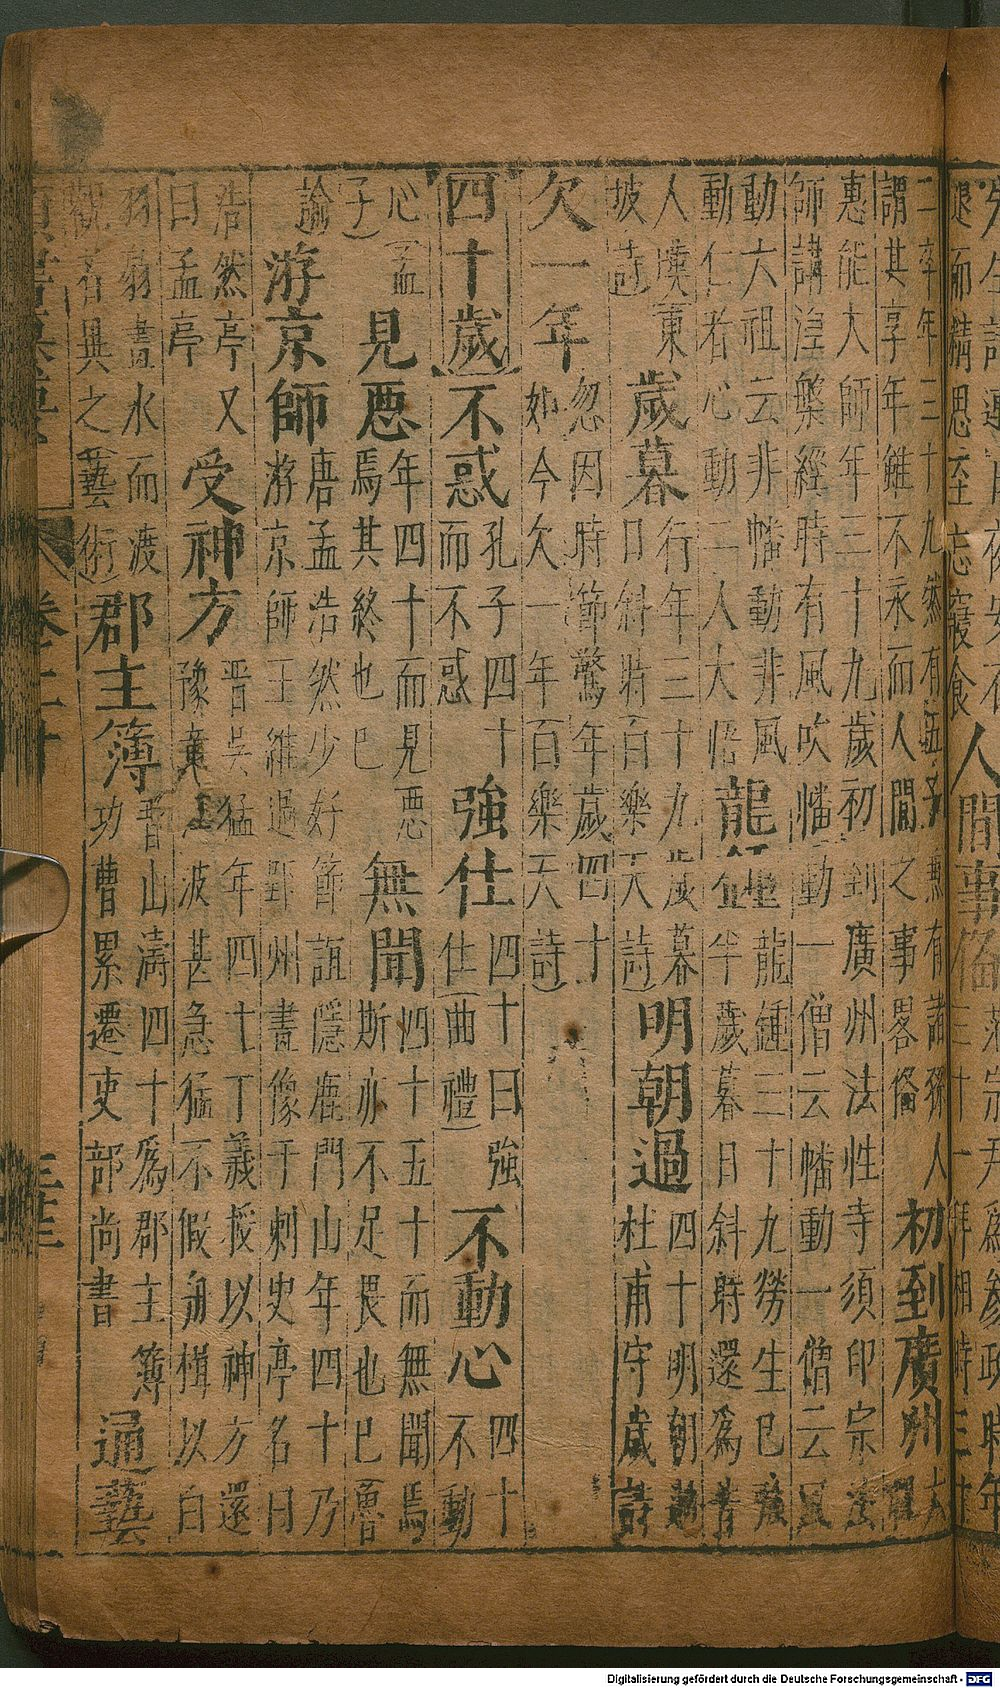 二李年三十九然有姪子無有諸孫人
謂其享年雖不永而人間之事畧備
初到廣州
惠能大師年三十九歲初到廣州法性寺須印宗法
師講湼槃經時有風吹幡動一僧云幡動一僧云風
動大祖云非幡動非風
動仁者心動二人大悟
龍鍾
龍鍾三十九勞生已強
半歲暮日斜時還為昔
人嘆東
坡詩
歲暮
行年三十九歲暮
日斜時白樂天詩
明朝過
四十明朝過
杜甫守歲詩
欠一年
忽因時節驚年歲四十
如今欠一年百樂天詩
四十歲
不惑
孔子四十
而不惑
強仕
四十曰強
仕曲禮
不動心
四十
不動
心孟
子
見惡
年四十而見惡
焉其終也巳
無聞
四十五十而無聞焉
斯亦不足畏也巳魯
論
游京師
唐孟浩然少好節誼隱鹿門山年四十乃
游京師王維過郢州畫像于刺史亭名曰
浩然亭又
曰孟亭
受神方
晋吳猛年四十丁義授以神方還
豫章江波甚急猛不假舟楫以白
羽扇畫水而渡
觀者異之藝術
郡主簿
晋山濤四十為郡主簿
功曹累遷吏部尚書
通藝
Digitalisierung gefördert durch die Deutsche Forschungsgemeinschaft - DFG